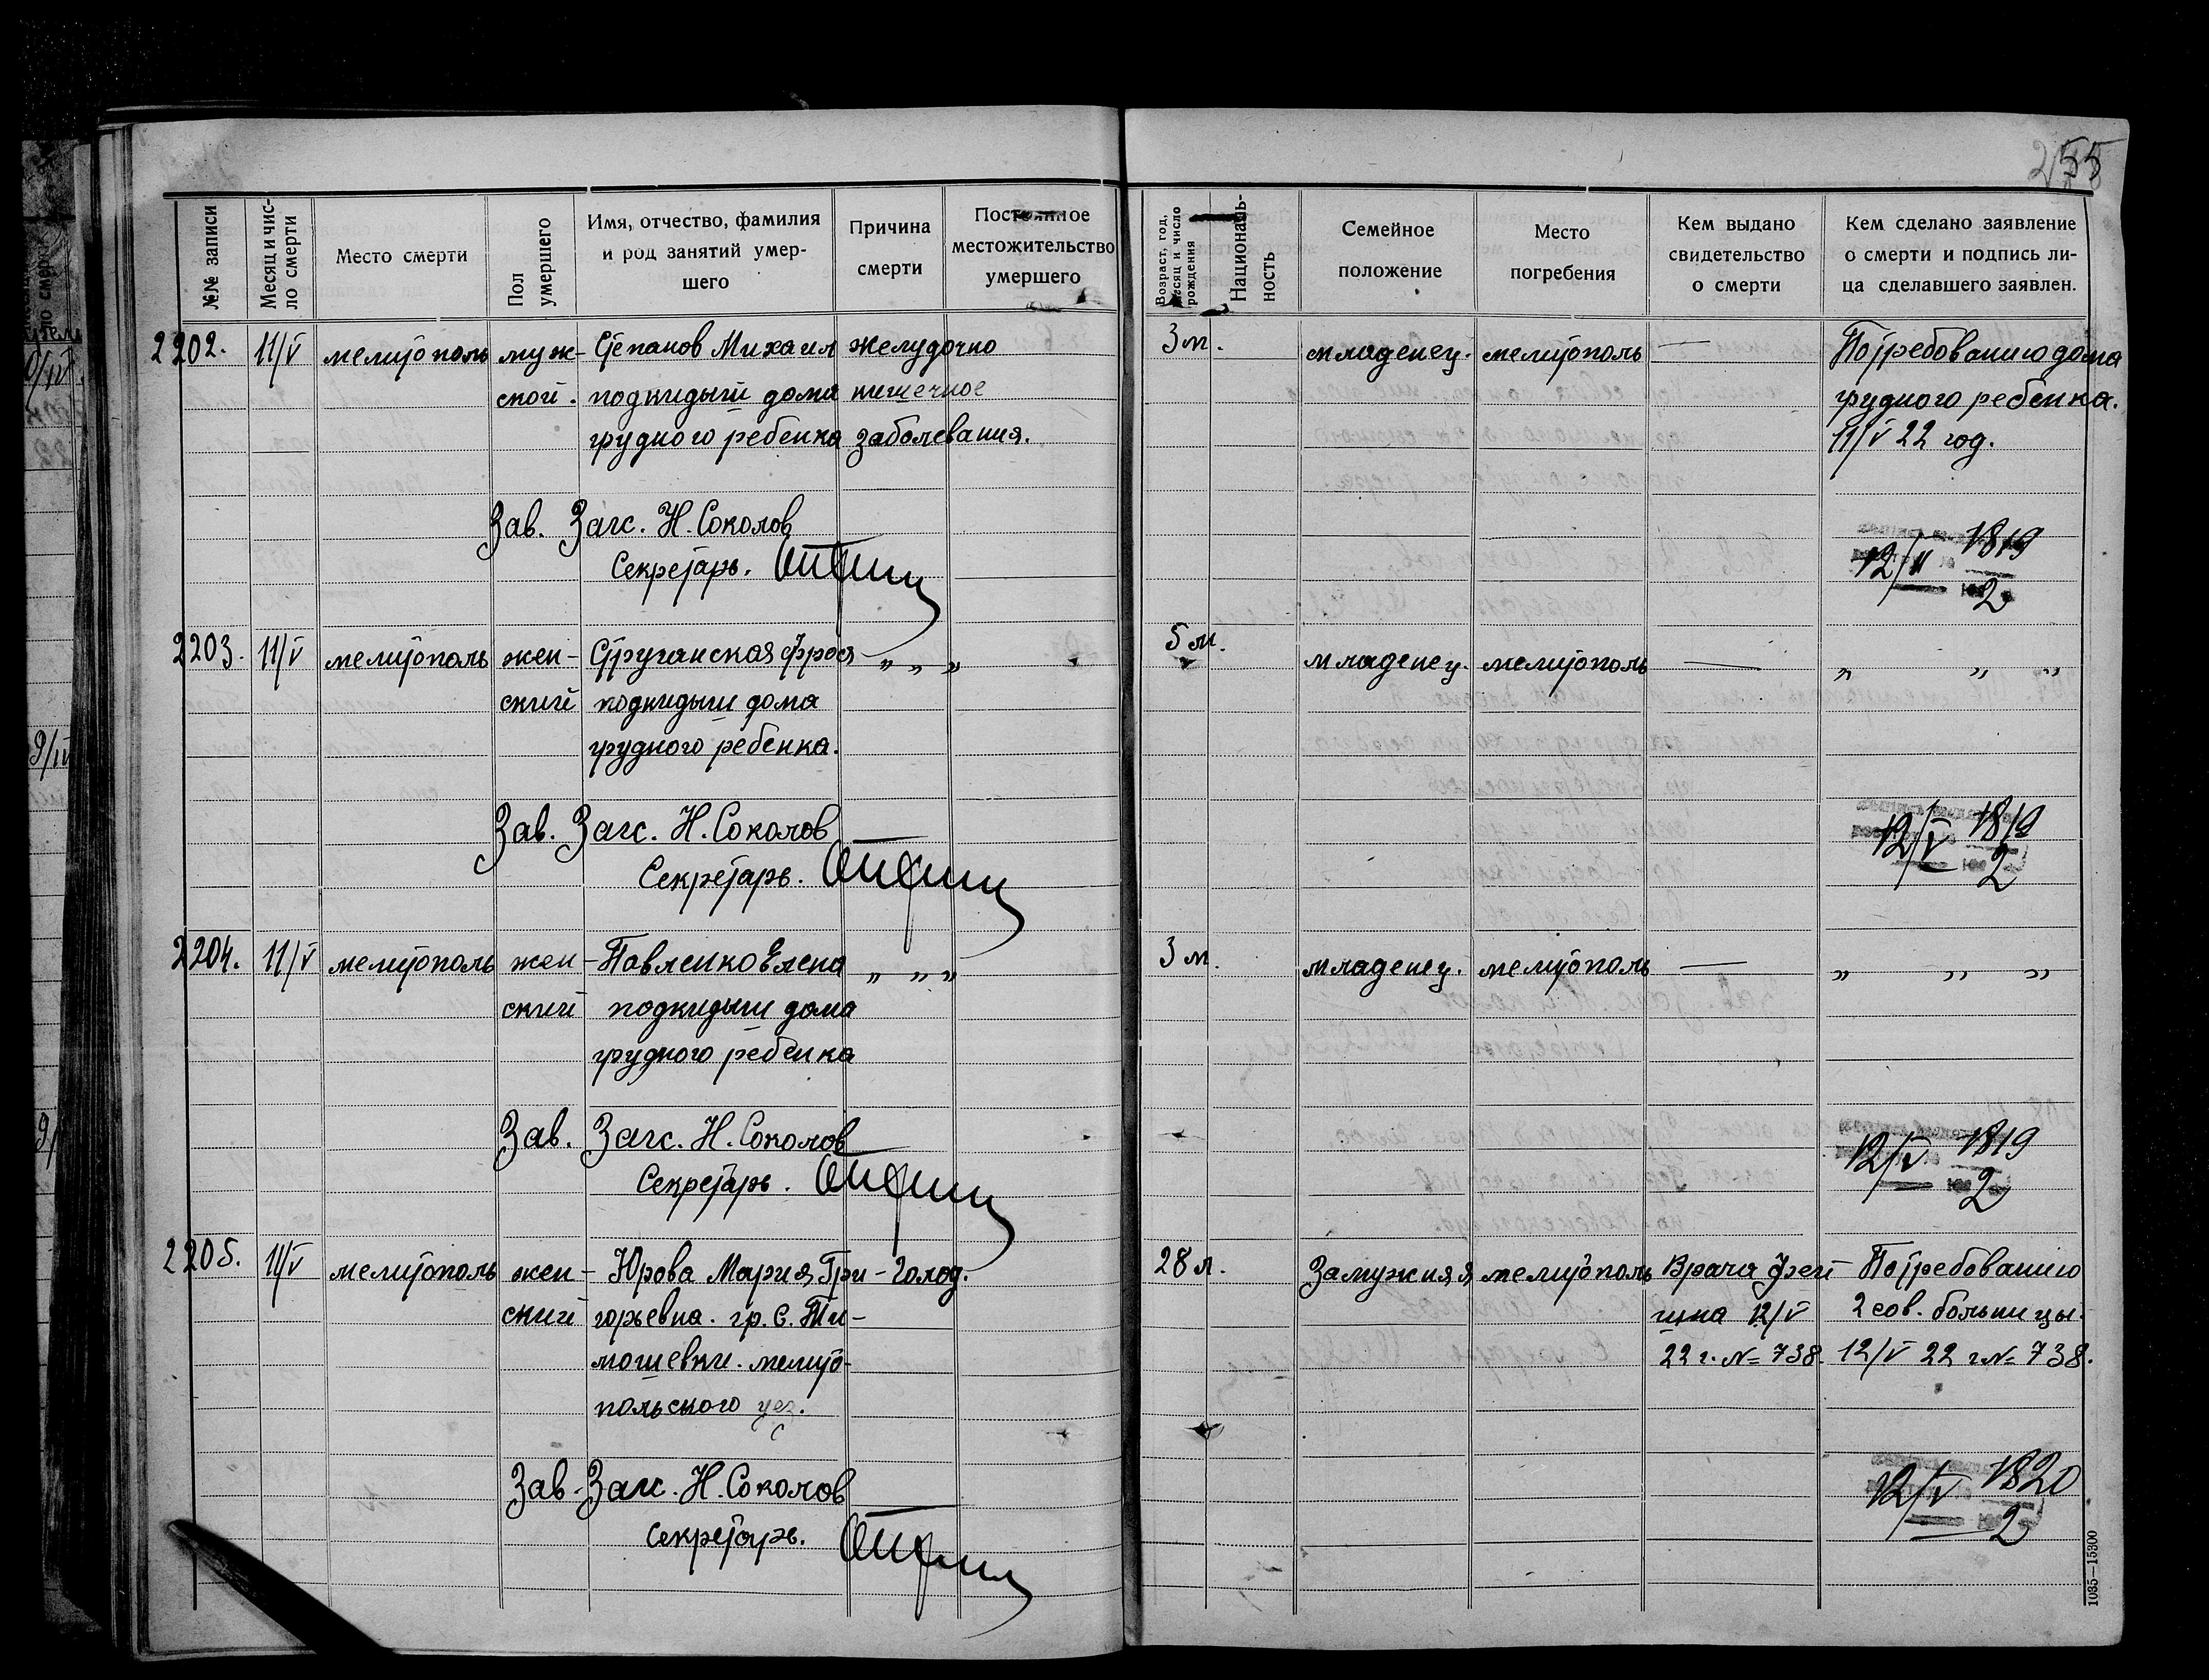 255
№№ записи
Месяц и чис-
ло смерти
Место смерти
Пол
умершего
Имя, отчество, фамилия
и род занятий умер-
шего
Причина
смерти
Постоянное
местожительство
умершего
Возраст, год,
месяц и число
рождения
Националь-
ность
Семейное
положение
Место
погребения
Кем выдано
свидетельство
о смерти
Кем сделано заявление
о смерти и подпись ли-
ца сделавшего заявлен.
2202. 11/V мелитополь муж- Степанов Михаил желудочно 3 м. младенец. мелитополь — По требованию дома
ской. подкидыш дома кишечное грудного ребенка.
грудного ребенка заболевания. 11/V 22 год.
Зав. Загс. Н. Соколов
Секретарь.
12/V 1819
2
2203. 11/V мелитополь жен- Струганская Фрося „ „ „ 5 м. младенец. мелитополь — „ „ „
ский подкидыш дома
грудного ребенка.
Зав. Загс. Н. Соколов
Секретарь.
12/V 1819
2
2204. 11/V мелитополь жен- Павленко Елена „ „ „ 3 м. младенец. мелитополь — „ „ „
ский подкидыш дома
грудного ребенка
Зав. Загс. Н. Соколов
Секретарь.
12/V 1819
2
2205. 11/V мелитополь жен- Юрова Мария Гри- Голод. 28 л. Замужняя мелитополь Врача Фей По требованию
ский горьевна. гр. с. Ти- гина 12/V 2 сов. больницы.
мошевки. мелито- 22 г. № 738. 12/V 22 г № 738.
польского уез.
Зав. Загс. Н. Соколов
Секретарь.
12/V 1820
2
1035—15300